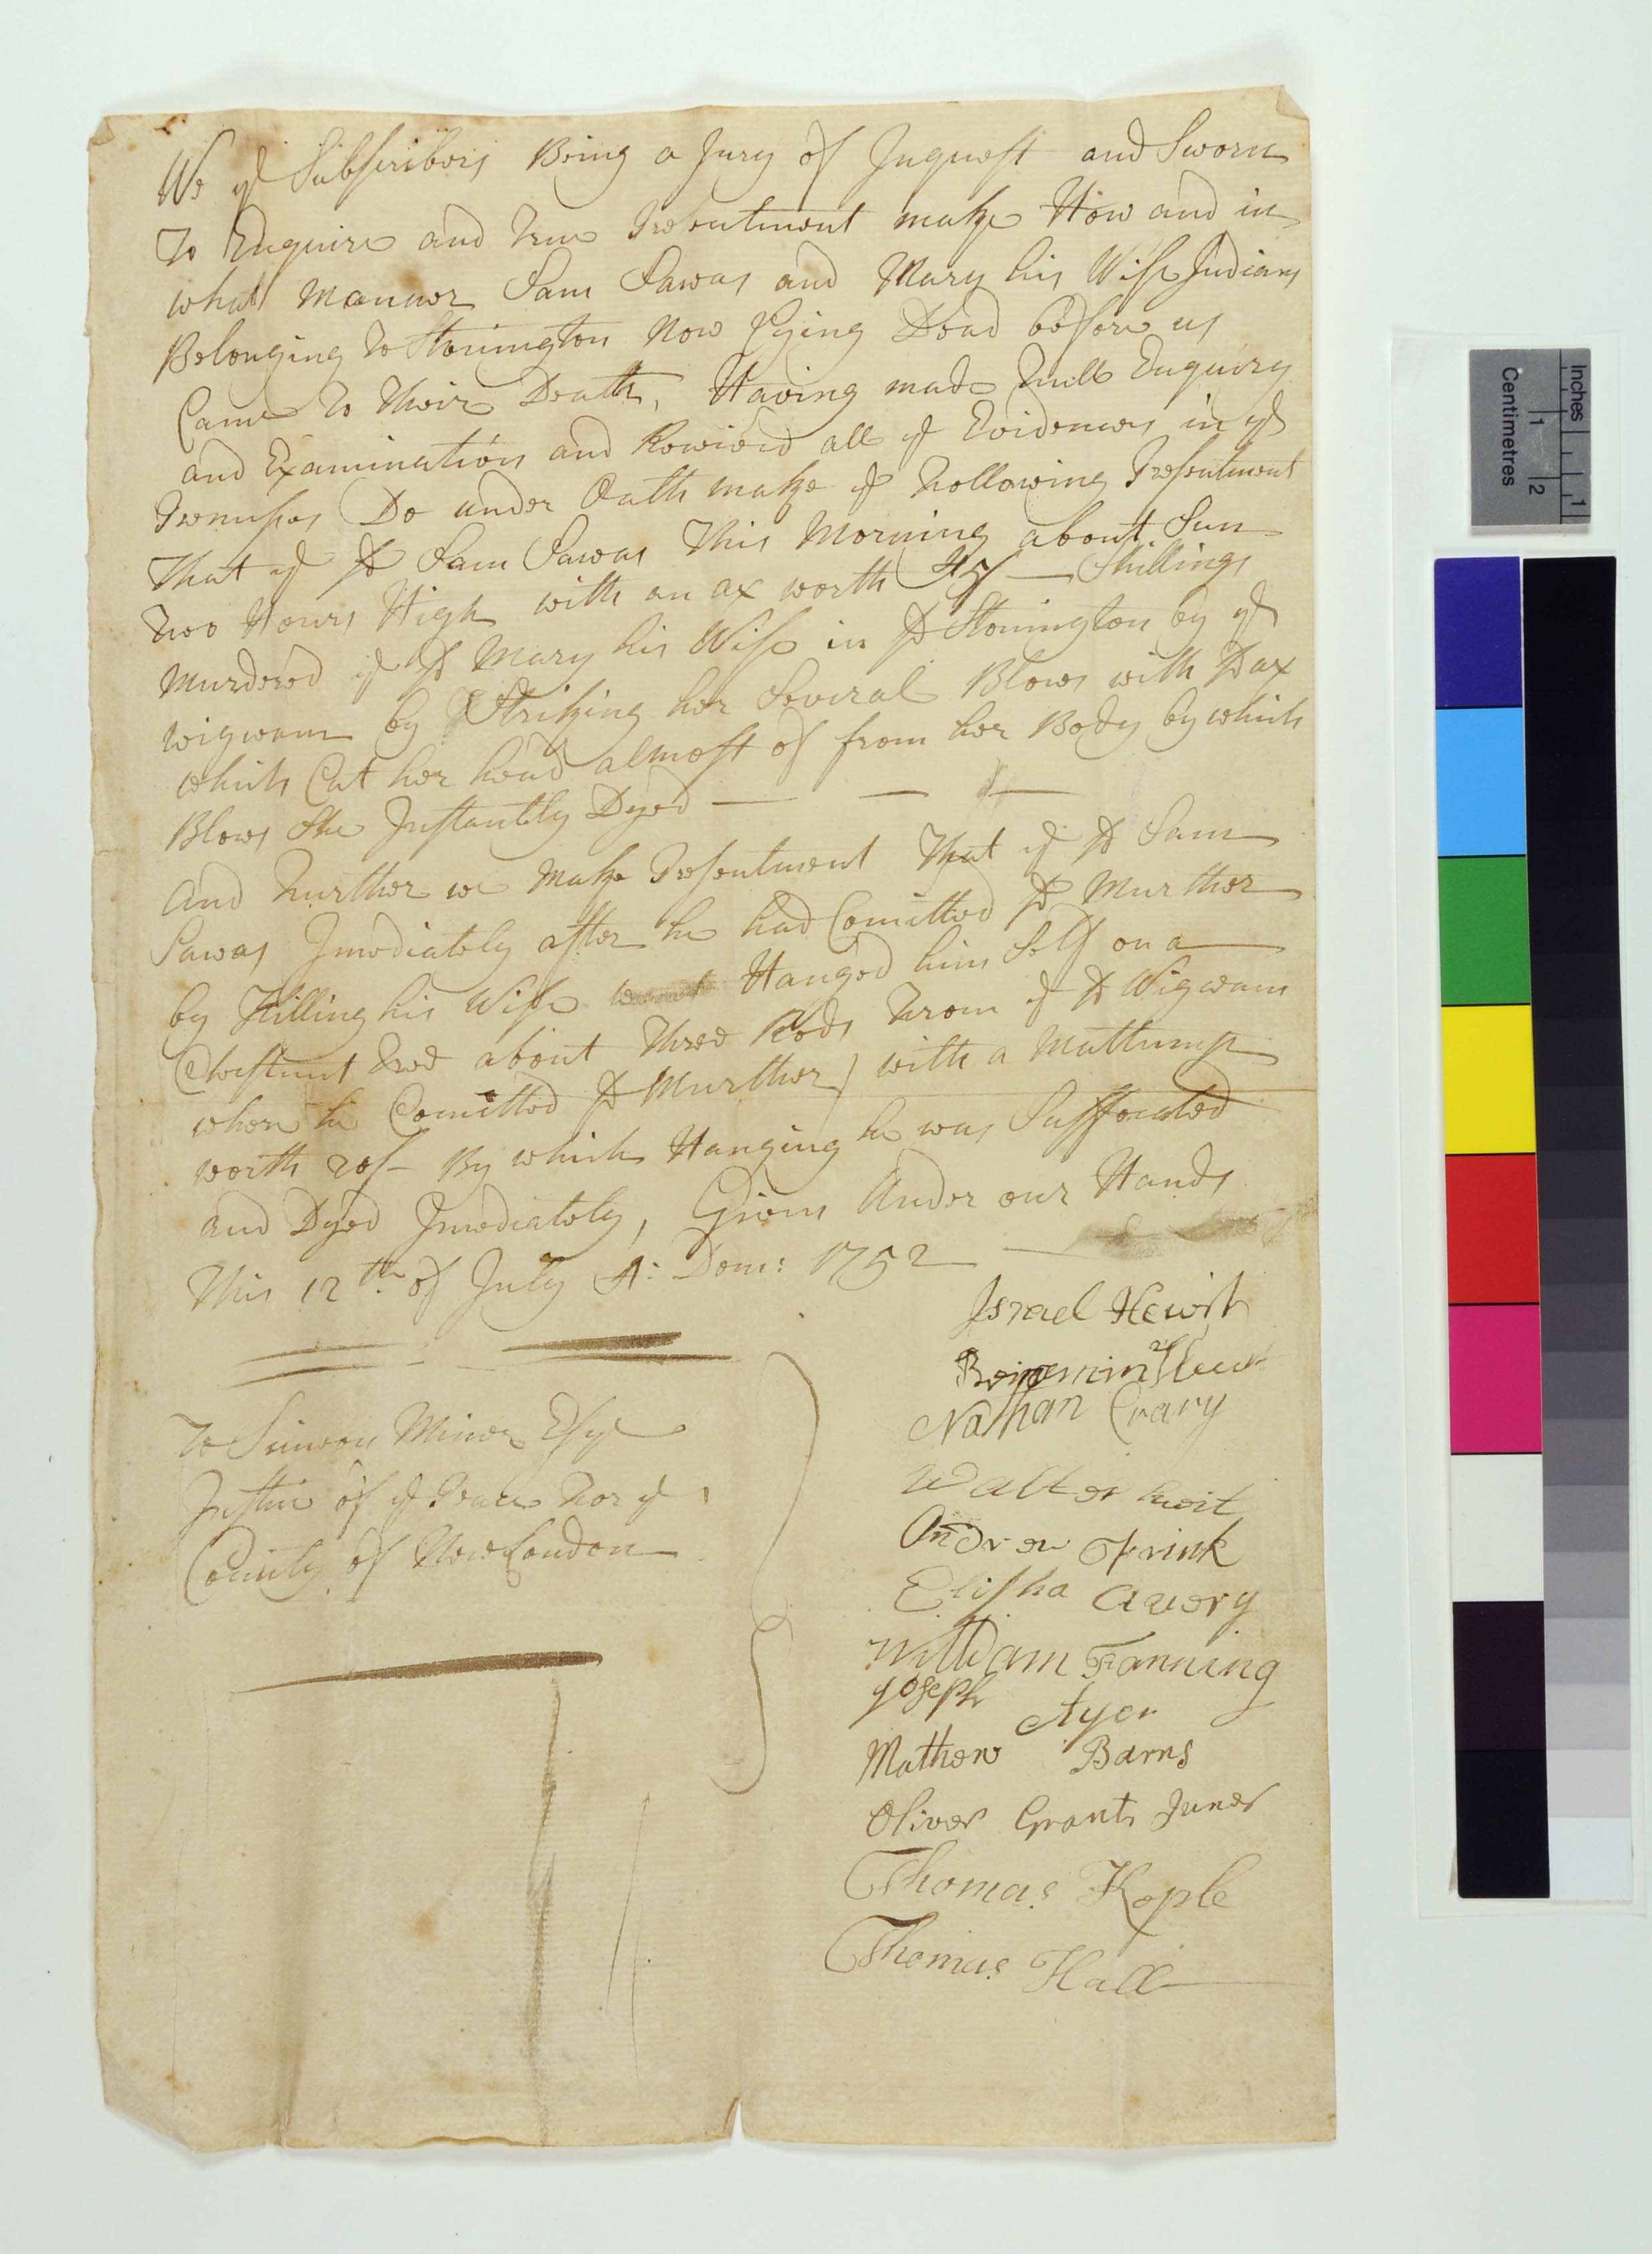 We ye Subscribers Being a Jury of Inquest and Sworn
To Enquire and True Presentment make How and in
what Manner Sam Sawas and Mary his Wife Indians
Belonging to Stonington Now lying Dead before us
Came To Their Death, Having made Full Enquiry
and Examination and Reviewed all ye Evidences in ye
Premises Do under Oath make ye Following Presentment
That ye sd Sam Sawas This Morning about Sun
Two Hours High with an ax worth Shillings
Murdered ye sd Mary his Wife in sd Stonington by ye
wigwam by Striking her Several Blows with sd ax
which Cut her head almost of from her Body by which
Blows She Instantly Dyed
And Further we Make Presentment That ye sd Sam
Sawas Imediately after he had Comitted sd Murther
by Killing his Wife Hanged him Self on a
Chestnut Tree about Three Rods From ye sd Wigwam
where he Comitted sd Murther with a Mattump
worth 20s By which Hanging he was Suffocated
and Dyed Imediately, Given Under our Hands
This 12th of July A: Dom: 1752
Israel Hewit
Beinjemin Hewit
Nathan Crary
Walter hewit
Andrew Frink
Elisha Avery
William Fanning
Joseph Ayer
Mathew Barns
Oliver Grant Juner
Thomas Kople
Thomas Hall
To Simeon Miner Esqr
Justice of ye Peace For ye
County of New London
Inches
1
Centimetres
1
2